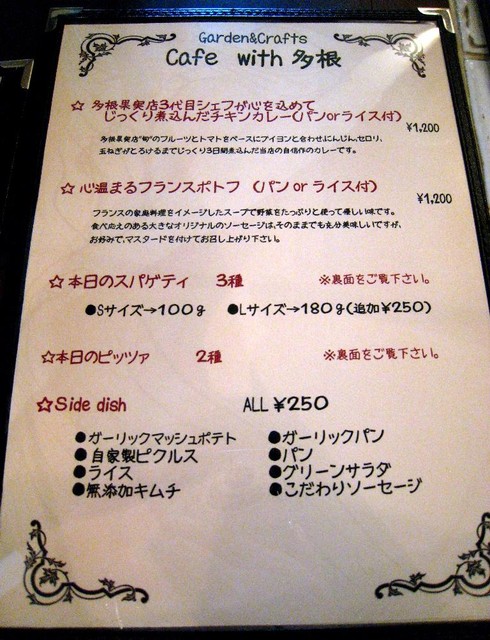 Garden&Crafts
Cafe with 多根
☆ 多根果実店3代目シェフが心を込めて
じっくり煮込んだチキンカレー(パンorライス付)
¥1,200
多根果実店"旬"のフルーツとトマトをベースにブイヨンと合わせにんじん、セロリ、
玉ねぎがとろけるまでじっくり3日間煮込んだ当店の自信作のカレーです。
☆ 心温まるフランスポトフ (パン or ライス付)
¥1,200
フランスの家庭料理をイメージしたスープで野菜をたっぷりと使って優しい味です。
食べ応えのある大きなオリジナルのソーセージは、そのままでも充分美味しいですが、
お好みで、マスタードを付けてお召し上がり下さい。
☆本日のスパゲティ 3種 ※裏面をご覧下さい。
●Sサイズ→100g ●Lサイズ→180g(追加¥250)
☆本日のピッツァ 2種 ※裏面をご覧下さい。
☆Side dish ALL ¥250
●ガーリックマッシュポテト ●ガーリックパン
●自家製ピクルス ●パン
●ライス ●グリーンサラダ
●無添加キムチ ●こだわりソーセージ